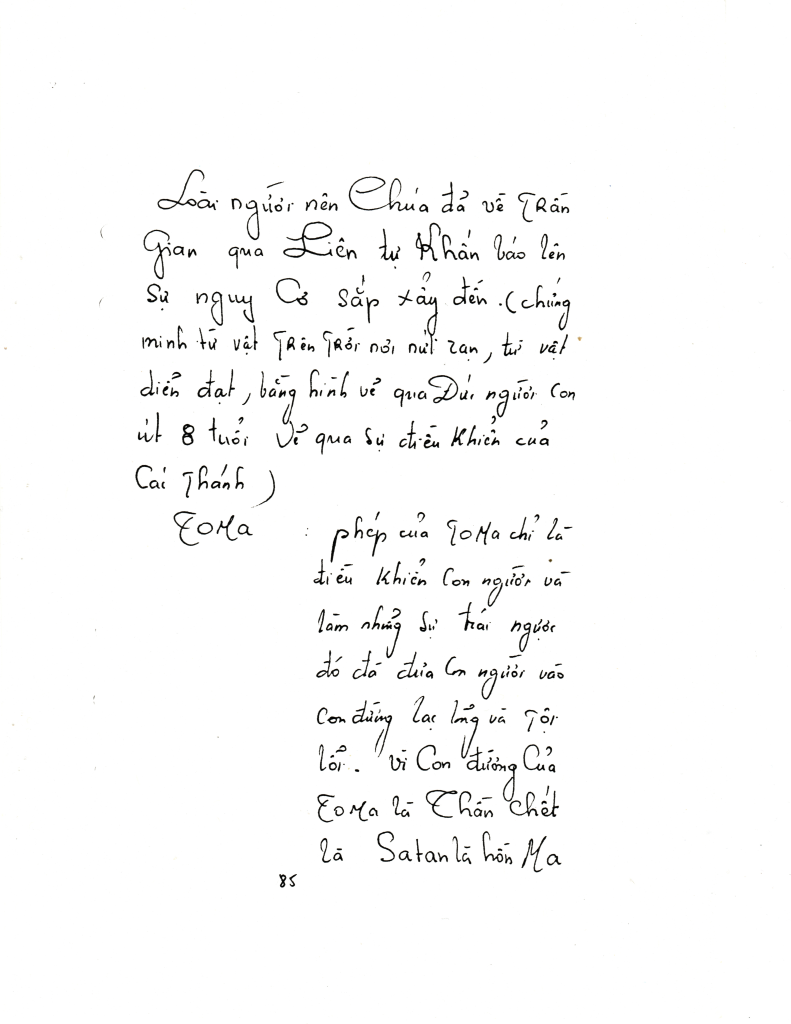 Loài người nên Chúa đả về Trần
Gian qua Liên tự Khẩn báo lên
Sự nguy Cơ sắp xảy đến. (chứng
minh từ vật Trên Trời nơi nứt rạn, từ vật
diển đạt, bằng hình vẻ qua Đức người con
út 8 tuổi Vẻ qua sự điều Khiển của
Cái Thánh)
ToMa : phép của ToMa chỉ là
điều Khiển Con người và
làm những sự trái ngược
đó đả đưa Con người vào
Con đường lạc lỏng và Tội
lổi. vì Con đường Của
ToMa là Thần chết
là Satan là hồn Ma
85